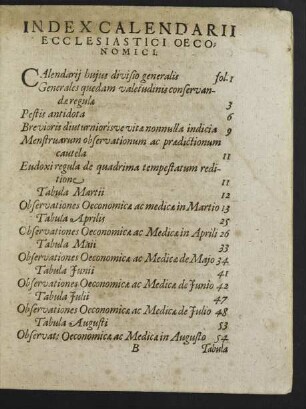 INDEX CALENDARII
ECCLESIASTICI OECO-
NOMICI.
CAlendarij hujus divisio generalis fol. 1
Generales quædam valetudinis conservan-
dæ regulæ 3
Pestis antidota 6
Brevioris diuturniorisve vitæ nonnulla indicia 9
Menstruarum observationum ac prædictionum
cautela 11
Eudoxi regula de quadrima tempestatum redi-
tione 11
Tabula Martii 12
Observationes Oeconomicæ ac medicæ in Martio 13
Tabula Aprilis 25
Observationes Oeconomicæ ac Medicæ in Aprili 26
Tabula Maii 33
Observationes Oeconomicæ ac Medicæ de Majo 34
Tabula Junii 41
Observationes Oeconomicæ ac Medicæ de Junio 42
Tabula Julii 47
Observationes Oeconomicæ ac Medicæ de Julio 48
Tabula Augusti 53
Observat: Oeconomicæ ac Medicæ in Augusto 54
B Tabula